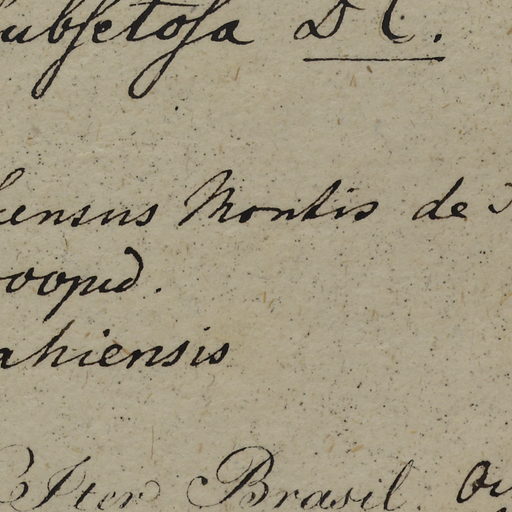 subsetosa DC.
census Montis de
oopid.
ahiensis
Iter Brasil.